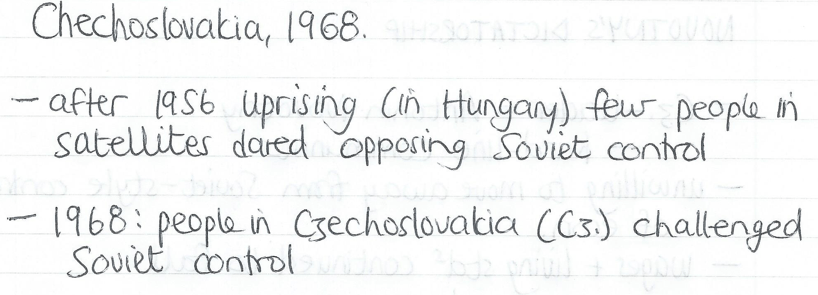 Chechoslovakia, 1968.
- after 1956 uprising (in Hungary) few people in
satellites dared opposing Soviet control
- 1968: people in Czechoslovakia (Cz.) challenged
Soviet control